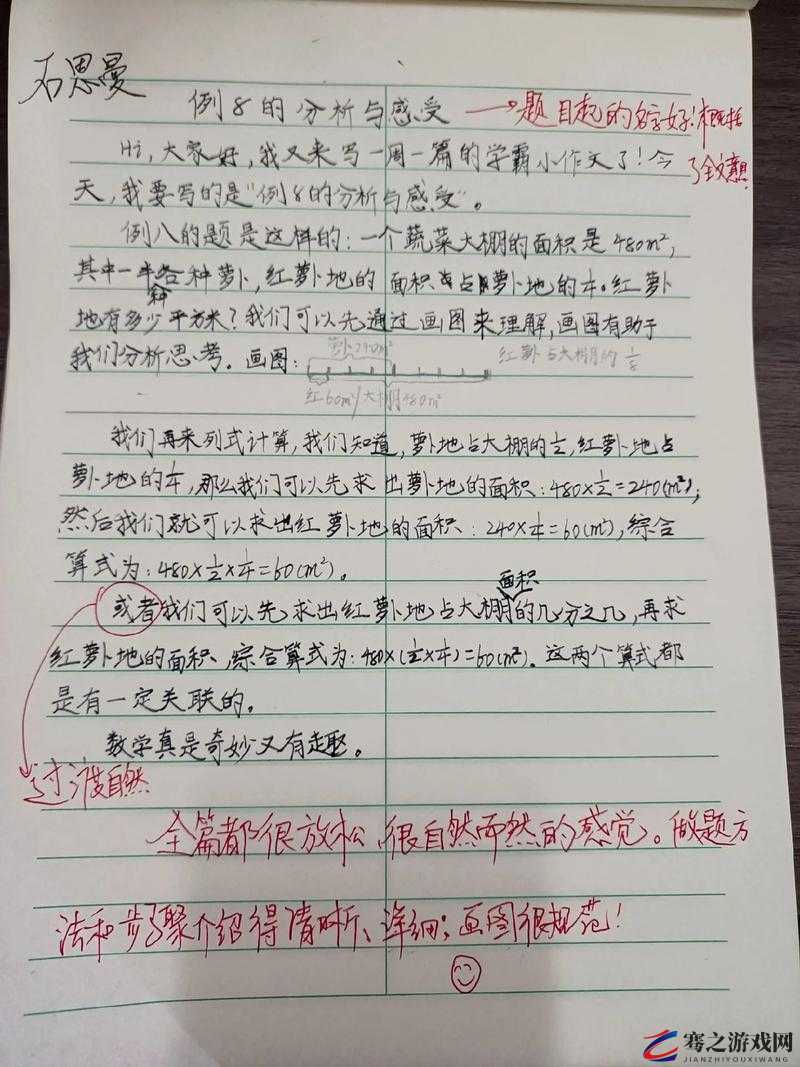 石思曼
例8的分析与感受 → 题目起的名字好!概括
了全文意思
Hi,大家好,我又来写一周一篇的学霸小作文了!今
天,我要写的是“例8的分析与感受”。
例八的题是这样的:一个蔬菜大棚的面积是480m²,
其中一半各种萝卜,红萝卜地的面积占萝卜地的1/4。红萝卜
种
地有多少平方米?我们可以先通过画图来理解,画图有助于
我们分析思考。画图:
萝卜240m²
红萝卜占大棚的1/8
红60m²
大棚480m²
我们再来列式计算,我们知道,萝卜地占大棚的1/2,红萝卜地占
萝卜地的1/4,那么我们可以先求出萝卜地的面积:480×1/2=240(m²);
然后我们就可以求出红萝卜地的面积:240×1/4=60(m²),综合
算式为:480×1/2×1/4=60(m²)。
或者我们可以先求出红萝卜地占大棚面积的几分之几,再求
红萝卜地的面积,综合算式为:480×(1/2×1/4)=60(m²)。这两个算式都
是有一定关联的。
数学真是奇妙又有趣。
过渡自然
全篇都很放松、很自然而然的感觉。做题方
法和步骤介绍得清晰、详细;画图很规范!
骞之游戏网
JIANZHIYOUXIWANG